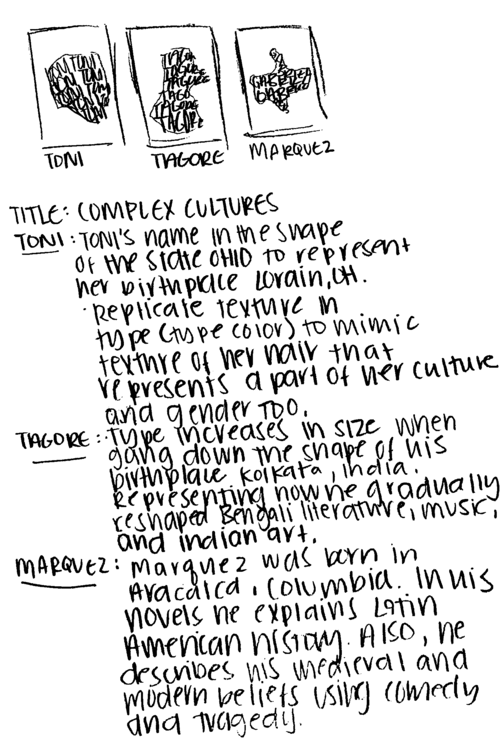 TONI
TAGORE
MARQUEZ
TITLE: COMPLEX CULTURES
TONI: TONI's name in the shape
of the state OHIO to represent
her birthplace Lorain, OH.
· Replicate texture in
type (type color) to mimic
texture of her hair that
represents a part of her culture
and gender too.
TAGORE: Type increases in size when
going down the shape of his
birthplace Kolkata, India.
Representing how he gradually
reshaped Bengali literature, music,
and indian art.
MARQUEZ: Marquez was born in
, Columbia. In his
novels he explains Latin
American history. Also, he
describes his medieval and
modern beliefs using comedy
and tragedy.